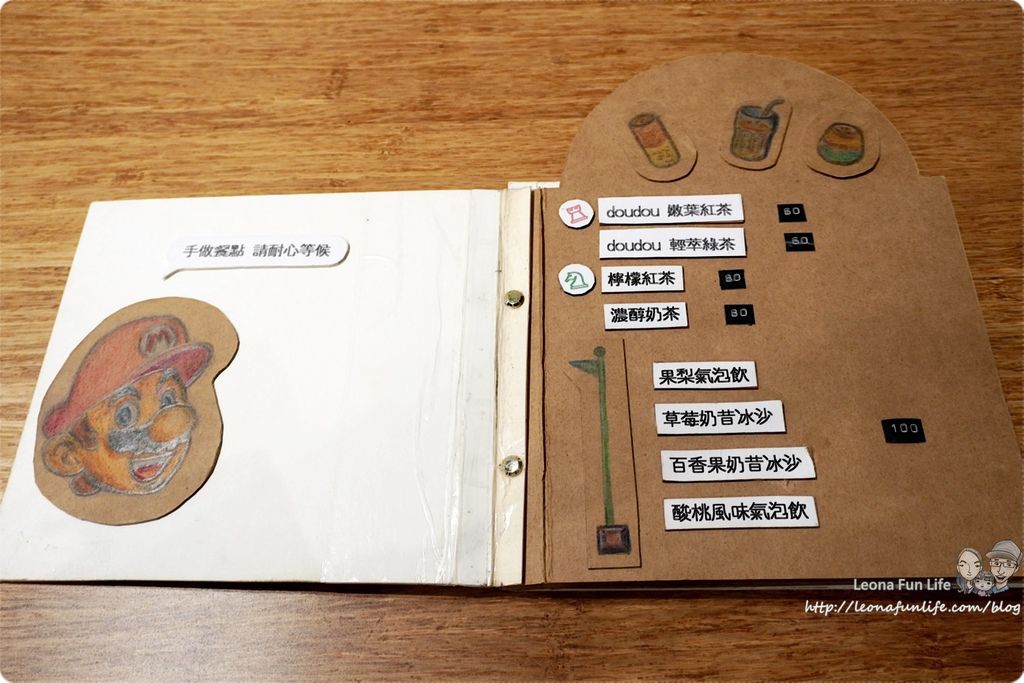 手做餐點 請耐心等候
M
doudou 嫩葉紅茶 60
doudou 輕萃綠茶 60
檸檬紅茶 80
濃醇奶茶 80
果梨氣泡飲
草莓奶昔冰沙
100
百香果奶昔冰沙
酸桃風味氣泡飲
Leona Fun Life
http://leonafunlife.com/blog